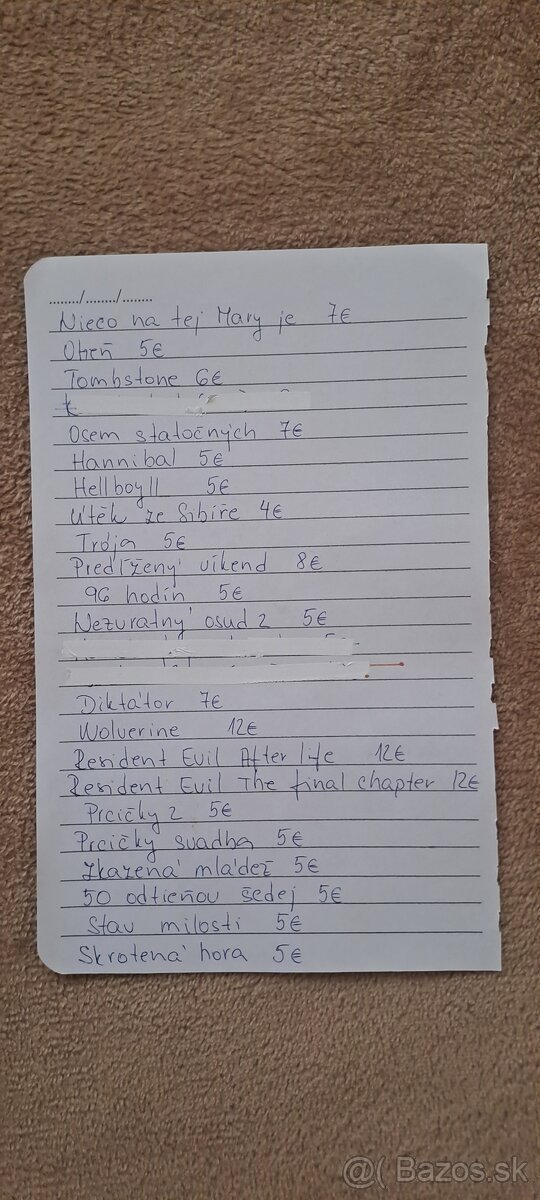 ......../......../........
Nieco na tej Mary je 7€
Oheň 5€
Tombstone 6€
Osem statočných 7€
Hannibal 5€
HellboyII 5€
Útěk ze Sibiře 4€
Trója 5€
Predĺžený víkend 8€
96 hodín 5€
Nezvratný osud 2 5€
Diktátor 7€
Wolverine 12€
Resident Evil After life 12€
Resident Evil The final chapter 12€
Prcičky 2 5€
Prcičky svadba 5€
Zkazená mládež 5€
50 odtieňou šedej 5€
Stav milosti 5€
Skrotená hora 5€
@( Bazos.sk